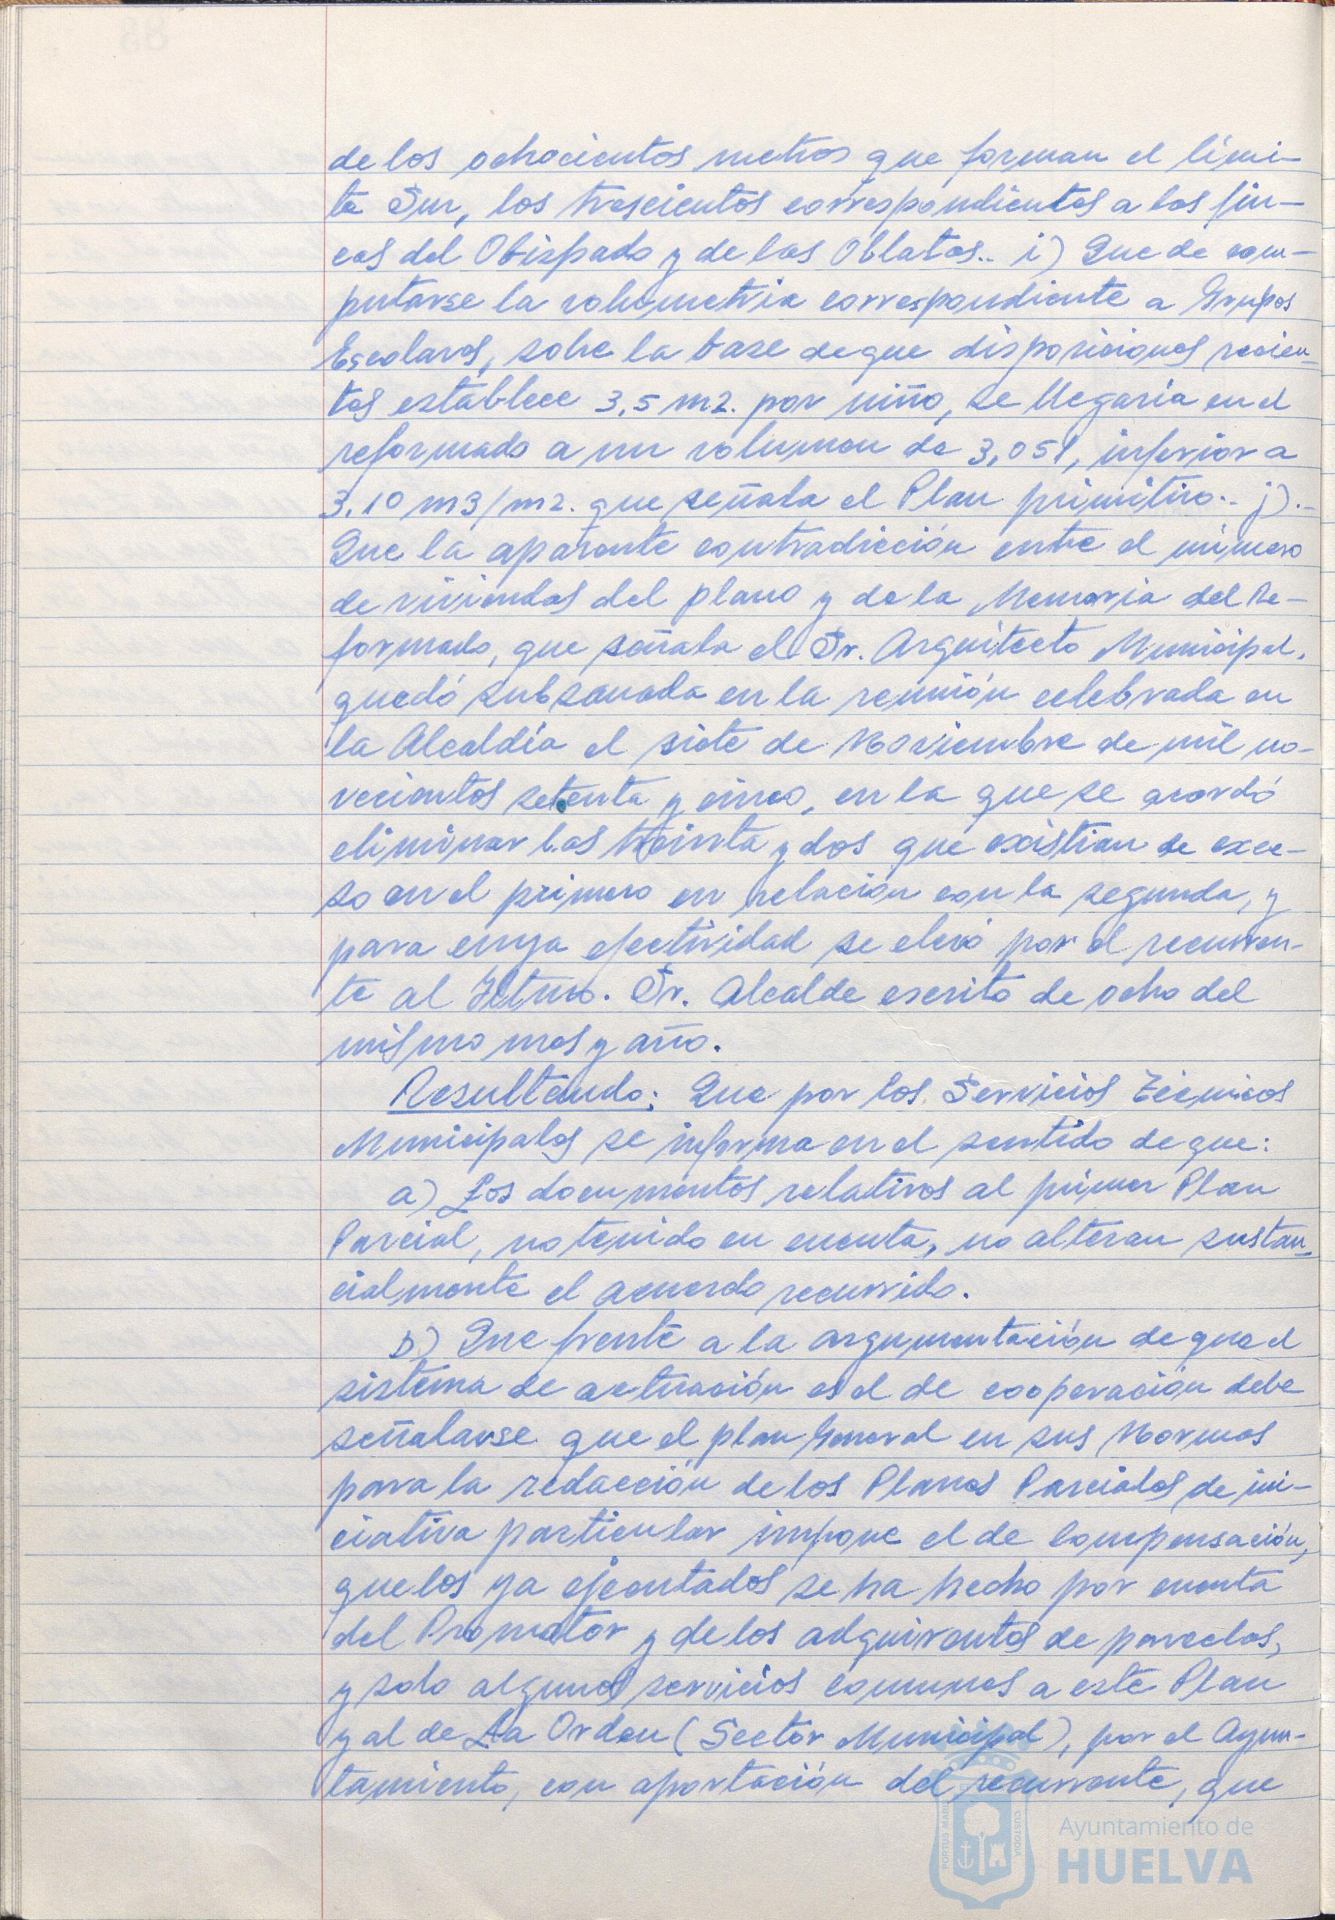 de los ochocientos metros que forman el lími-
te Sur, los trescientos correspondientes a las fin-
cas del Obispado y de las Oblatas.. i) Que de com-
putarse la volumetria correspondiente a Grupos
Escolares, sobre la base de que disposiciones recien-
tes establece 3,5 m2. por niño, se llegaría en el
reformado a un volumen de 3,051, inferior a
3,10 m3/m2. que señala el Plan primitivo.- j).-
Que la aparente contradicción entre el número
de viviendas del plano y de la Memoria del Re-
formado, que señala el Sr. Arquitecto Municipal,
quedó subsanada en la reunión celebrada en
la Alcaldía el siete de Noviembre de mil no-
vecientos setenta y cinco, en la que se acordó
eliminar las treinta y dos que existian de exce-
so en el primero en relación con la segunda, y
para cuya efectividad se elevó por el recurren-
te al Iltmo. Sr. Alcalde escrito de ocho del
mismo mes y año.
Resultando: Que por los Servicios Técnicos
Municipales se informa en el sentido de que:
a) Los documentos relativos al primer Plan
Parcial, no tenido en cuenta, no alteran sustan-
cialmente el acuerdo recurrido.
b) Que frente a la argumentación de que el
sistema de actuación es el de cooperación debe
señalarse que el plan General en sus Normas
para la redacción de los Planes Parciales de ini-
ciativa particular impone el de compensación,
que los ya ejecutados se ha hecho por cuenta
del Promotor y de los adquirentes de parcelas,
y solo algunos servicios comunes a este Plan
y al de La Orden (Sector Municipal), por el Ayun-
tamiento, con aportación del recurrente, que
PORTUS MARIS CUSTODIA
Ayuntamiento de
HUELVA